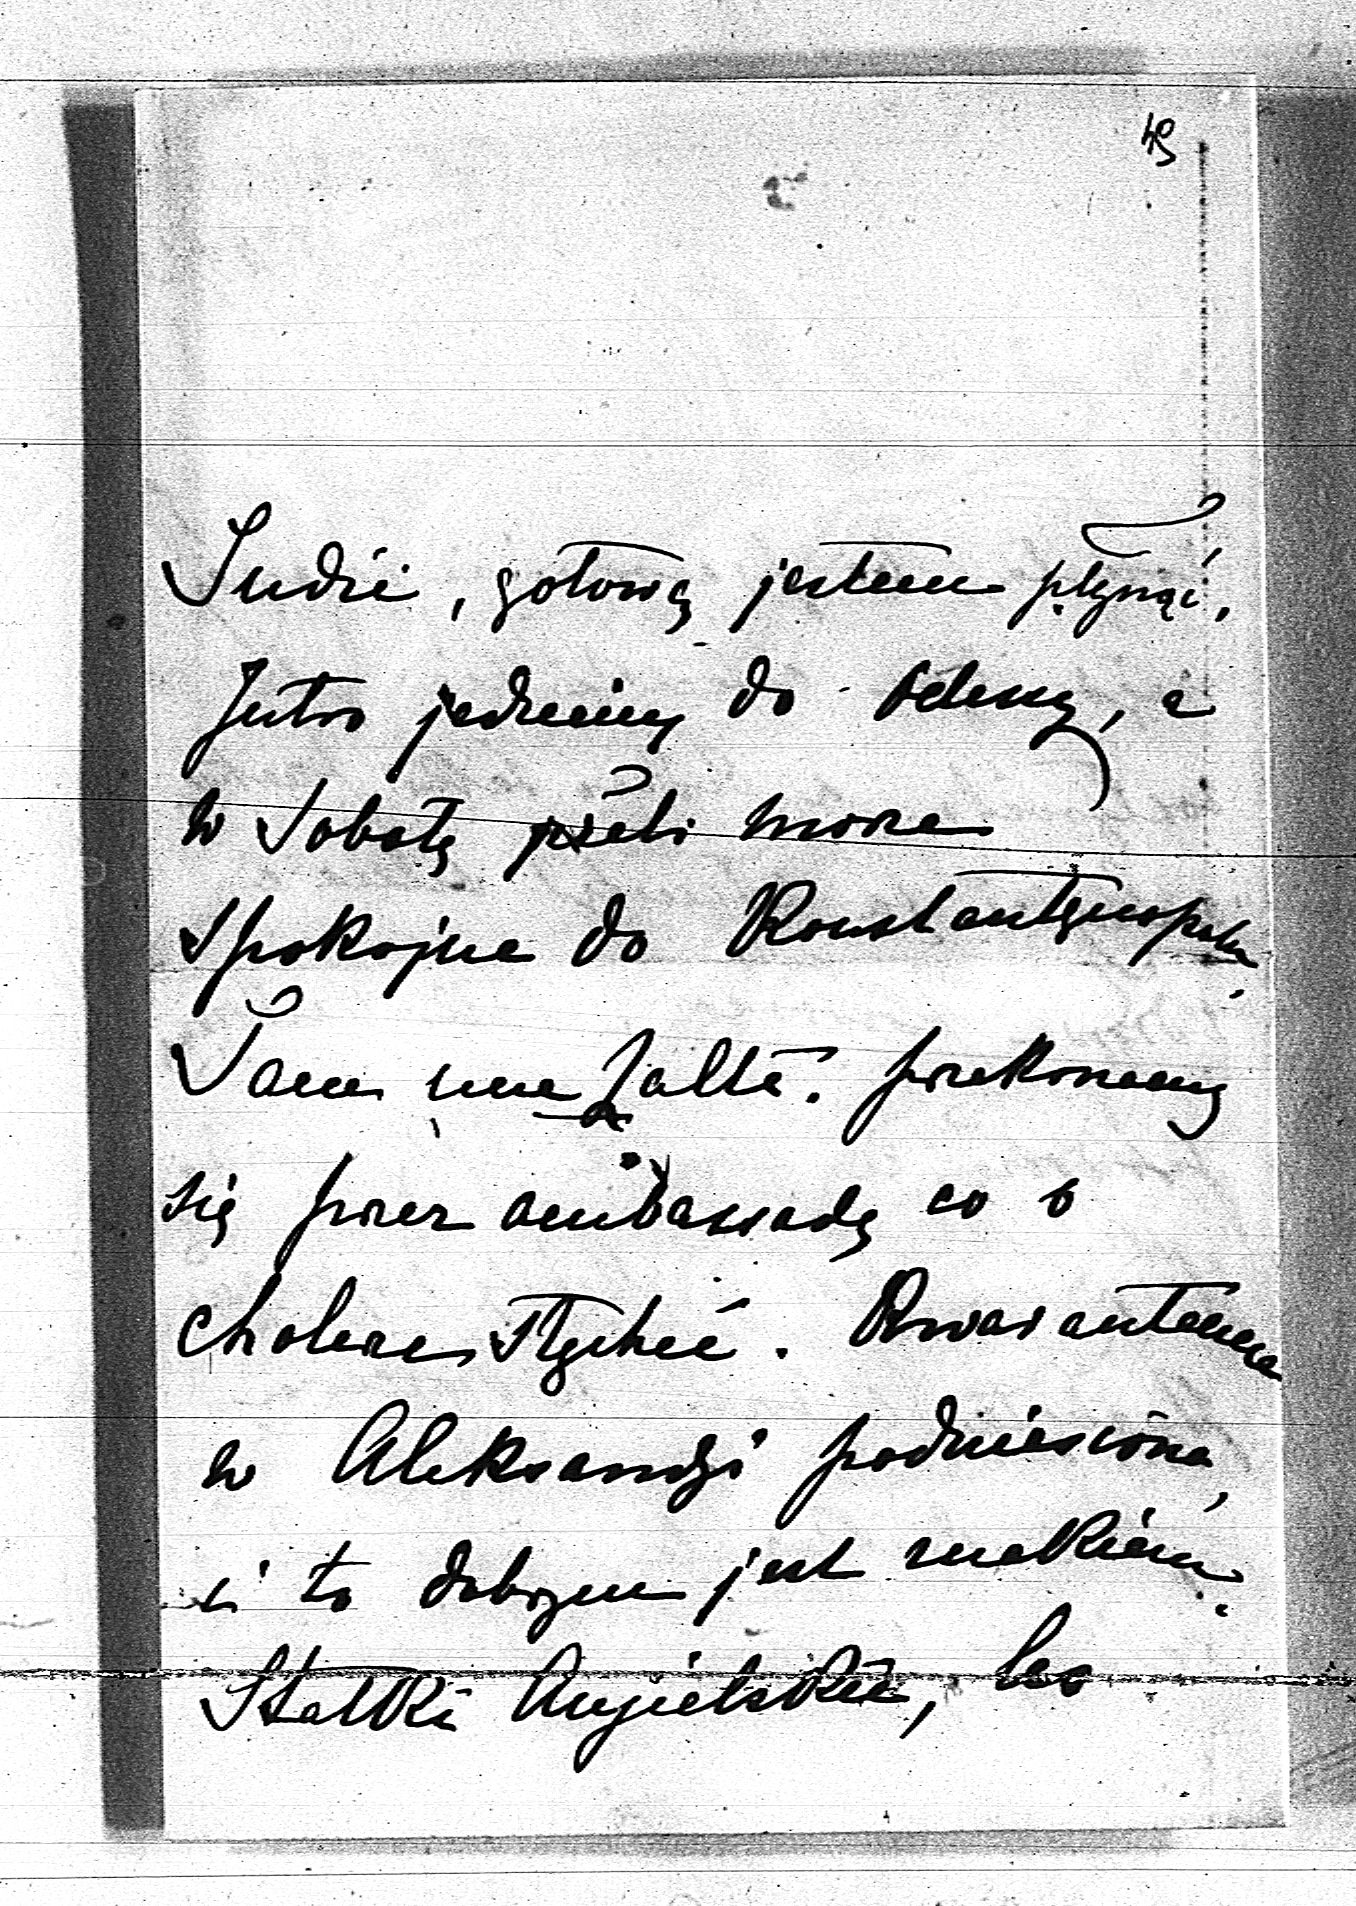 49
Indii, gotową jestem płynąć,
Jutro jedziemy do Odessy, a
w Sobotę jeżeli morze
spokojne do Konstantynopola.
Tam przekonamy
się przez ambassadę co o
cholerze słychać. Kwarantanna
w Aleksandryi podniesiona,
i to dobrym jest znakiem.
Statki Angielskie, bez